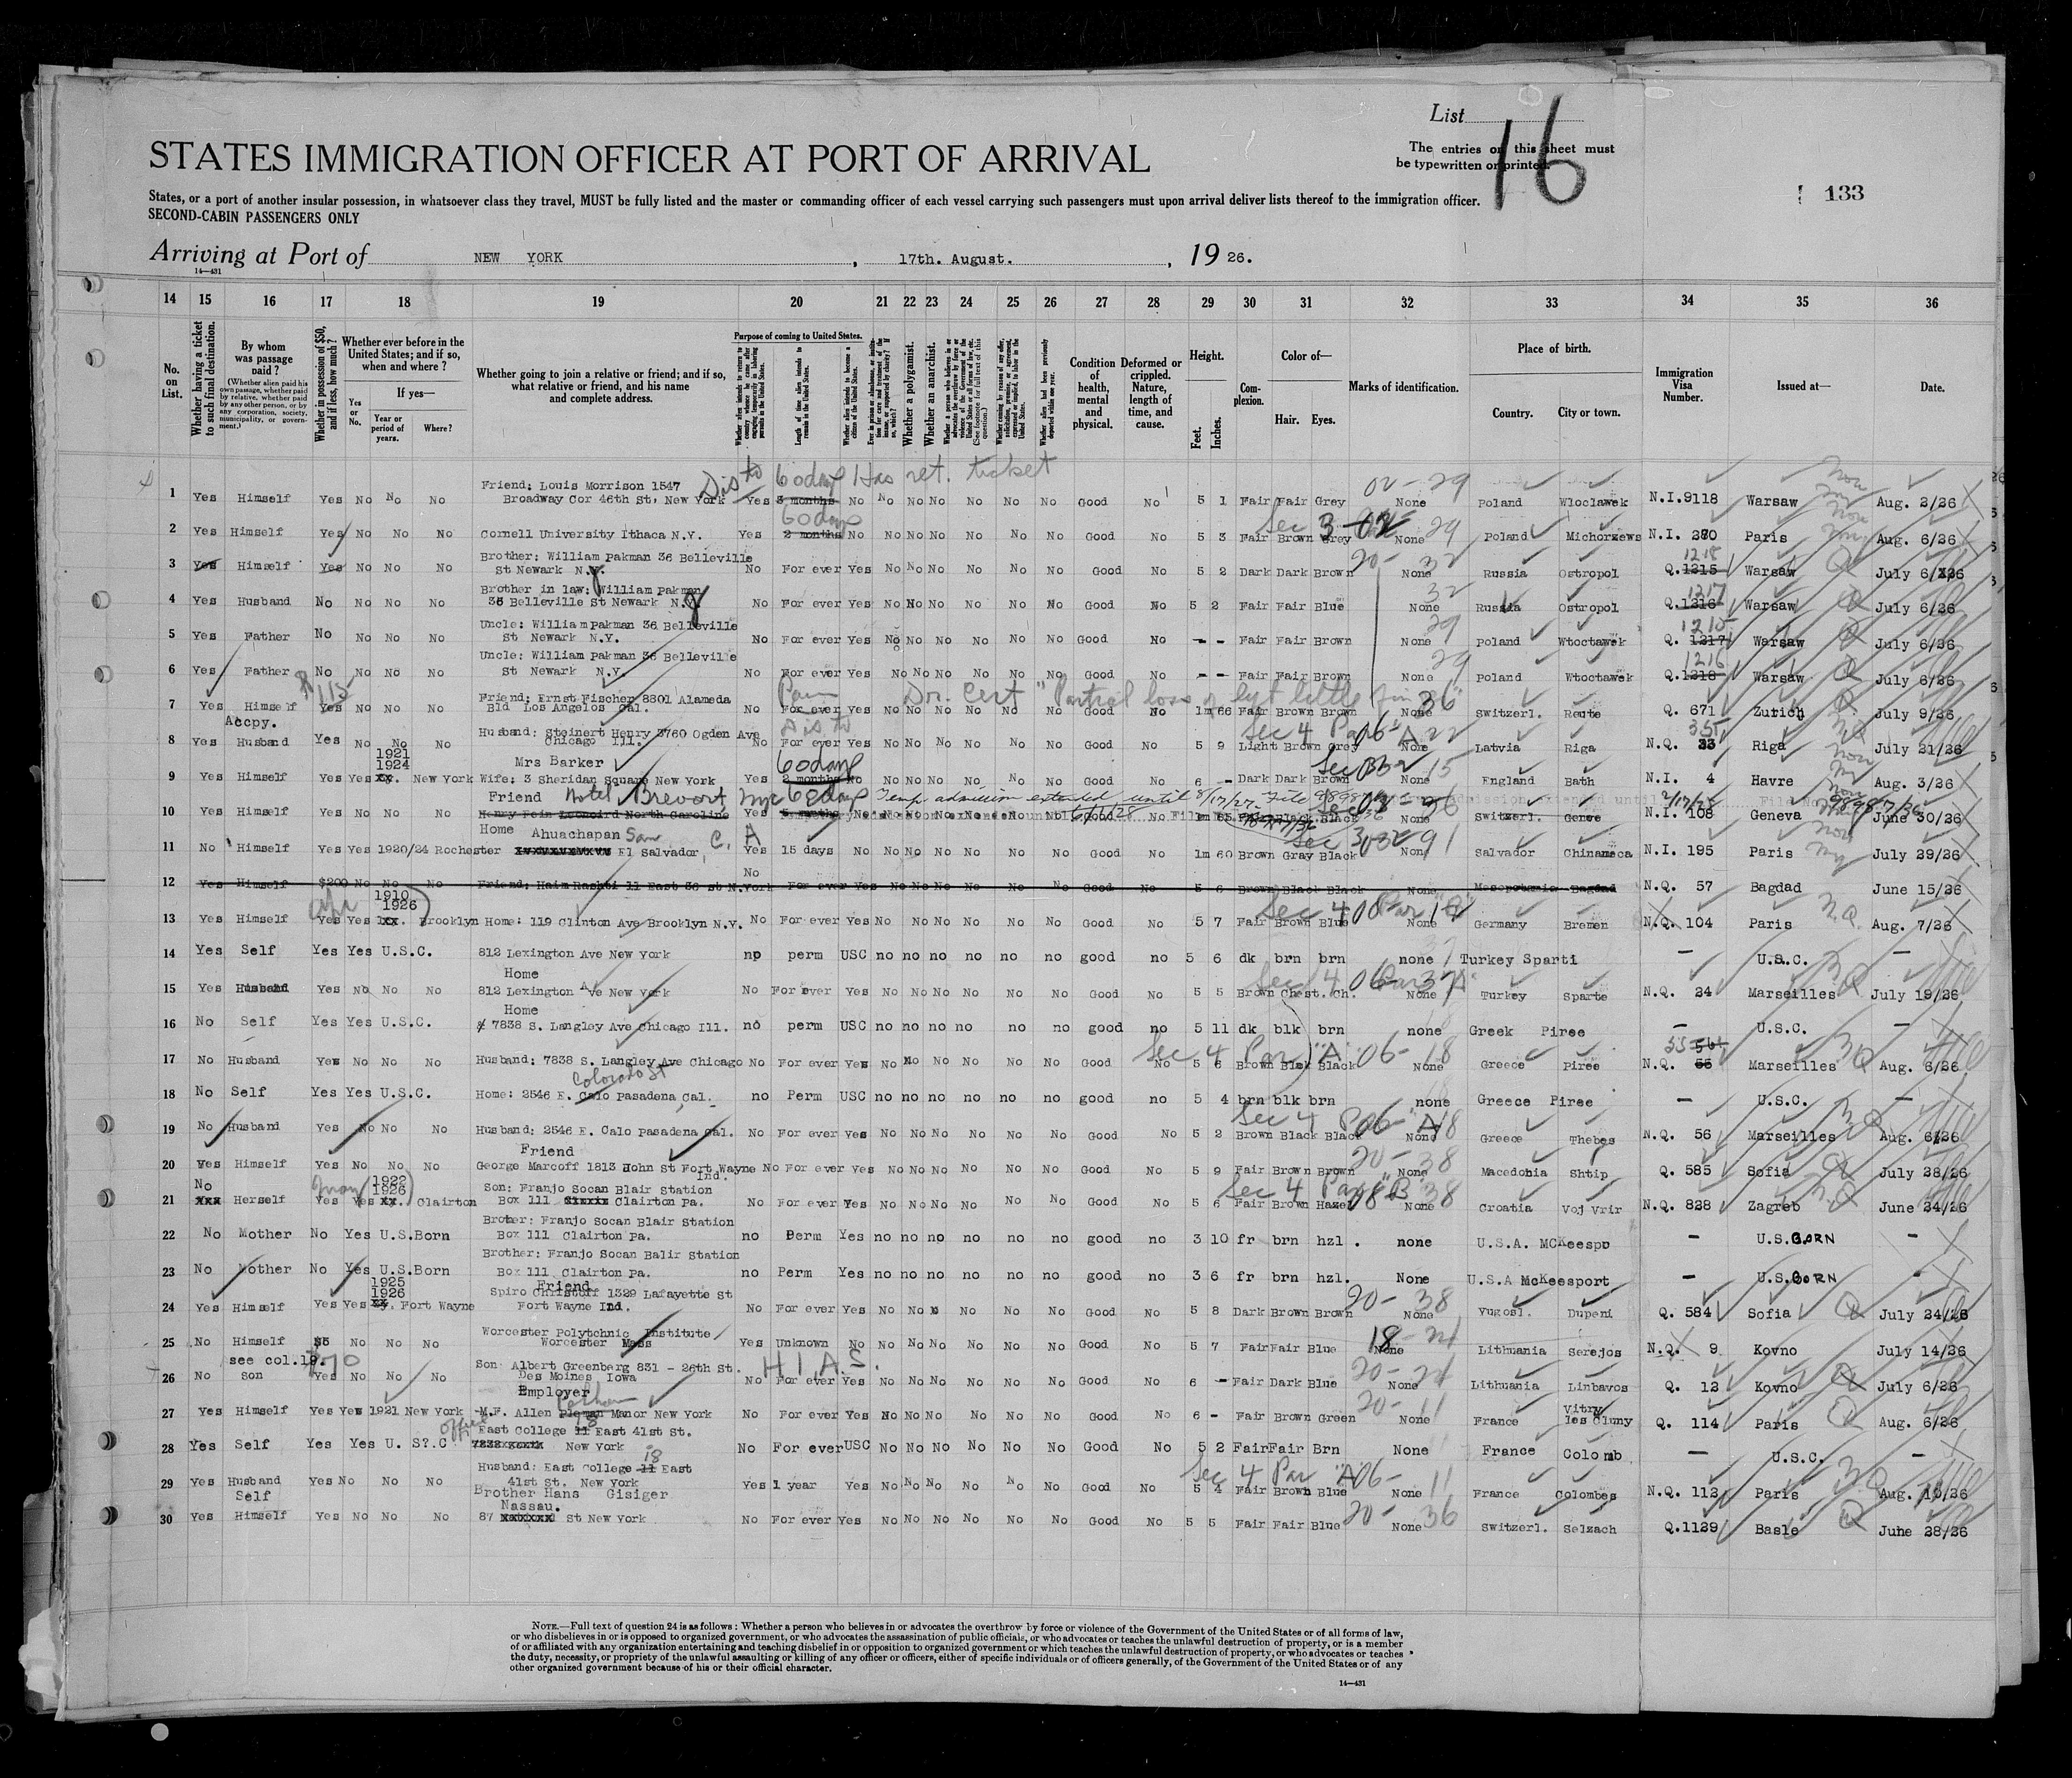 List 16
STATES IMMIGRATION OFFICER AT PORT OF ARRIVAL
The entries on this sheet must
be typewritten or printed.
133
States, or a port of another insular possession, in whatsoever class they travel, MUST be fully listed and the master or commanding officer of each vessel carrying such passengers must upon arrival deliver lists thereof to the immigration officer.
SECOND-CABIN PASSENGERS ONLY
Arriving at Port of NEW YORK, 17th. August., 1926.
14—431
14 15 16 17 18 19 20 21 22 23 24 25 26 27 28 29 30 31 32 33 34 35 36
No. on List.
Whether having a ticket to such final destination.
By whom was passage paid?
(Whether alien paid his own passage, whether paid by relative, whether paid by any other person, or by any corporation, society, municipality, or government.)
Whether in possession of $50, and if less, how much?
Whether ever before in the United States; and if so, when and where?
Yes or No.
If yes—
Year or period of years.
Where?
Whether going to join a relative or friend; and if so, what relative or friend, and his name and complete address.
Purpose of coming to United States.
Length of time alien intends to remain in the United States.
Whether alien intends to become a citizen of the United States.
Whether a polygamist.
Whether an anarchist.
Condition of health, mental and physical.
Deformed or crippled. Nature, length of time, and cause.
Height.
Feet.
Inches.
Complexion.
Color of—
Hair. Eyes.
Marks of identification.
Place of birth.
Country. City or town.
Immigration Visa Number.
Issued at—
Date.
Dis to 60 days Has ret. ticket
Friend: Louis Morrison 1547
1 Yes Himself Yes No No No Broadway Cor 46th St, New York Yes 3 months No No No No No No No Good No 5 1 Fair Fair Grey None Poland Wloclawek N.I.9118 Warsaw Aug. 2/26
60 days
2 Yes Himself Yes No No No Cornell University Ithaca N.Y. Yes 2 months No No No No No No No Good No 5 3 Fair Brown Grey None Poland Michorzews N.I. 280 Paris Aug. 6/26
Brother: William Pakman 36 Belleville
3 Yes Himself Yes No No No St Newark N.Y. No For ever Yes No No No No No No Good No 5 2 Dark Dark Brown None Russia Ostropol Q.1215 1218 Warsaw July 6/26
Brother in law: William Pakman
4 Yes Husband No No No No 36 Belleville St Newark N.Y. No For ever Yes No No No No No No Good No 5 2 Fair Fair Blue None Russia Ostropol Q.1216 1217 Warsaw July 6/26
Uncle: William Pakman 36 Belleville
5 Yes Father No No No No St Newark N.Y. No For ever Yes No No No No No No Good No - - Fair Fair Brown None Poland Wtoctawek Q. 1217 1215 Warsaw July 6/26
Uncle: William Pakman 36 Belleville
6 Yes Father No No No No St Newark N.Y. No For ever Yes No No No No No No Good No - - Fair Fair Brown None Poland Wtoctawek Q. 1218 1216 Warsaw July 6/26
115 Dr. Cert "Partial loss of left little finger"
Friend: Ernst Fischer 8801 Alameda
7 Yes Himself Yes No No No Bld Los Angelos Cal. No For ever Yes No No No No No No Good No 1m 66 Fair Brown Brown None Switzerl. Reute Q. 671 Zurich July 9/26
Accpy. Husband: Steinert Henry 3760 Ogden Ave
8 Yes Husband Yes No No No Chicago Ill. No For ever Yes No No No No No No Good No 5 9 Light Brown Grey None Latvia Riga N.Q. 33 Riga July 21/26
1921
1924 Mrs Barker 60 days
9 Yes Himself Yes Yes New York Wife: 3 Sheridan Square New York Yes 2 months No No No No No No No Good No 6 - Dark Dark Brown None England Bath N.I. 4 Havre Aug. 3/26
Friend Hotel Brevort nyc 6 days Temp. admission extended until 8/17/27. File
10 Yes Himself Yes No No No Henry Fein Leonoird North Caroline Yes None Switzerl. Geneve N.I. 108 Geneva June 30/26
Home Ahuachapan San
11 No Himself Yes Yes 1920/24 Rochester El Salvador, C. A Yes 15 days No No No No No No No Good No 1m 60 Brown Gray Black None Salvador Chinameca N.I. 195 Paris July 29/26
12 Yes Himself $200 No No No Friend: Haim Rashti 11 East 36 st N.York No For ever Yes No No No No No No Good No 5 6 Brown Black Black None Mesopotamia Bagdad N.Q. 57 Bagdad June 15/26
1910
1926
13 Yes Himself Yes Yes xx. Brooklyn Home: 119 Clinton Ave Brooklyn N.Y. No For ever Yes No No No No No No Good No 5 7 Fair Brown Blue None Germany Bremen N.Q. 104 Paris Aug. 7/26
14 Yes Self Yes Yes U.S.C. 812 Lexington Ave New York no perm USC no no no no no no good no 5 6 dk brn brn none Turkey Sparti - U.S.C. -
Home
15 Yes Husband Yes No No No 812 Lexington Ave New York No For ever Yes No No No No No No Good No 5 5 Brown Chest. Ch. None Turkey Sparte N.Q. 24 Marseilles July 19/26
Home
16 No Self Yes Yes U.S.C. 7838 S. Langley Ave Chicago Ill. no perm USC no no no no no no good no 5 11 dk blk brn none Greek Piree - U.S.C. -
Sec 4 Par "A" 06-18
17 No Husband Yes No No No Husband: 7838 S. Langley Ave Chicago No For ever Yes No No No No No No Good No 5 6 Brown Black Black None Greece Piree N.Q. 55 Marseilles Aug. 6/26
Colorado St
18 No Self Yes Yes U.S.C. Home: 2546 E. Calo Pasadena Cal. no Perm USC no no no no no no good no 5 4 brn blk brn none Greece Piree - U.S.C. -
19 No Husband Yes No No No Husband: 2546 E. Calo Pasadena Cal. No For ever Yes No No No No No No Good No 5 2 Brown Black Black None Greece Thebes N.Q. 56 Marseilles Aug. 6/26
Friend
20 Yes Himself Yes No No No George Marcoff 1813 John St Fort Wayne Ind. No For ever Yes No No No No No No Good No 5 9 Fair Brown Brown None Macedonia Shtip Q. 585 Sofia July 28/26
No 1922
1926 Son: Franjo Socan Blair Station
21 xxx Herself Yes Yes xx. Clairton Box 111 Clairton Pa. No For ever Yes No No No No No No Good No 5 6 Fair Brown Hazel None Croatia Voj Vrir N.Q. 828 Zagreb June 24/26
Brother: Franjo Socan Blair Station
22 No Mother No Yes U.S.Born Box 111 Clairton Pa. no Perm Yes no no no no no no good no 3 10 fr brn hzl. none U.S.A. McKeespo - U.S.BORN -
Brother: Franjo Socan Balir Station
23 No Mother No Yes U.S.Born Box 111 Clairton Pa. no Perm Yes no no no no no no good no 3 6 fr brn hzl. None U.S.A McKeesport - U.S.BORN -
1925 Friend
1926 Spiro Christoff 1329 Lafayette St
24 Yes Himself Yes Yes Fort Wayne Fort Wayne Ind. No For ever Yes No No No No No No Good No 5 8 Dark Brown Brown None Yugosl. Dupeni Q. 584 Sofia July 24/26
Worcester Polytchnic Institute
25 No Himself No No No Worcester Mass Yes Unknown No No No No No No No Good No 5 7 Fair Fair Blue None Lithuania Serejos N.Q. 9 Kovno July 14/26
see col.19. $70 Son: Albert Greenberg 831 - 26th St. H.I.A.S.
26 No Son Yes No No No Des Moines Iowa No For ever Yes No No No No No No Good No 6 - Fair Dark Blue None Lithuania Linbavos Q. 12 Kovno July 6/26
Employer Pelham
27 Yes Himself Yes Yes 1921 New York M.F. Allen Manor New York No For ever Yes No No No No No No Good No 6 - Fair Brown Green None France Vitry les Cluny Q. 114 Paris Aug. 6/26
office East College 11 18 East 41st St.
28 Yes Self Yes Yes U. S?.C New York No For ever USC No No No No No No Good No 5 2 Fair Fair Brn None France Colomb - U.S.C. -
Husband: East College 11 18 East
29 Yes Husband Yes No No No 41st St. New York Yes 1 year Yes No No No No No No Good No 5 4 Fair Brown Blue None France Colombes N.Q. 112 Paris Aug. 10/26
Self Brother Hans Gisiger
Nassau.
30 Yes Himself Yes No No No 87 xxxxxxx St New York No For ever Yes No No No No No No Good No 5 5 Fair Fair Blue None Switzerl. Selzach Q.1129 Basle June 28/26
NOTE.—Full text of question 24 is as follows: Whether a person who believes in or advocates the overthrow by force or violence of the Government of the United States or of all forms of law,
or who disbelieves in or is opposed to organized government, or who advocates the assassination of public officials, or who advocates or teaches the unlawful destruction of property, or is a member
of or affiliated with any organization entertaining and teaching disbelief in or opposition to organized government or which teaches the unlawful destruction of property, or who advocates or teaches
the duty, necessity, or propriety of the unlawful assaulting or killing of any officer or officers, either of specific individuals or of officers generally, of the Government of the United States or of any
other organized government because of his or their official character.
14—431